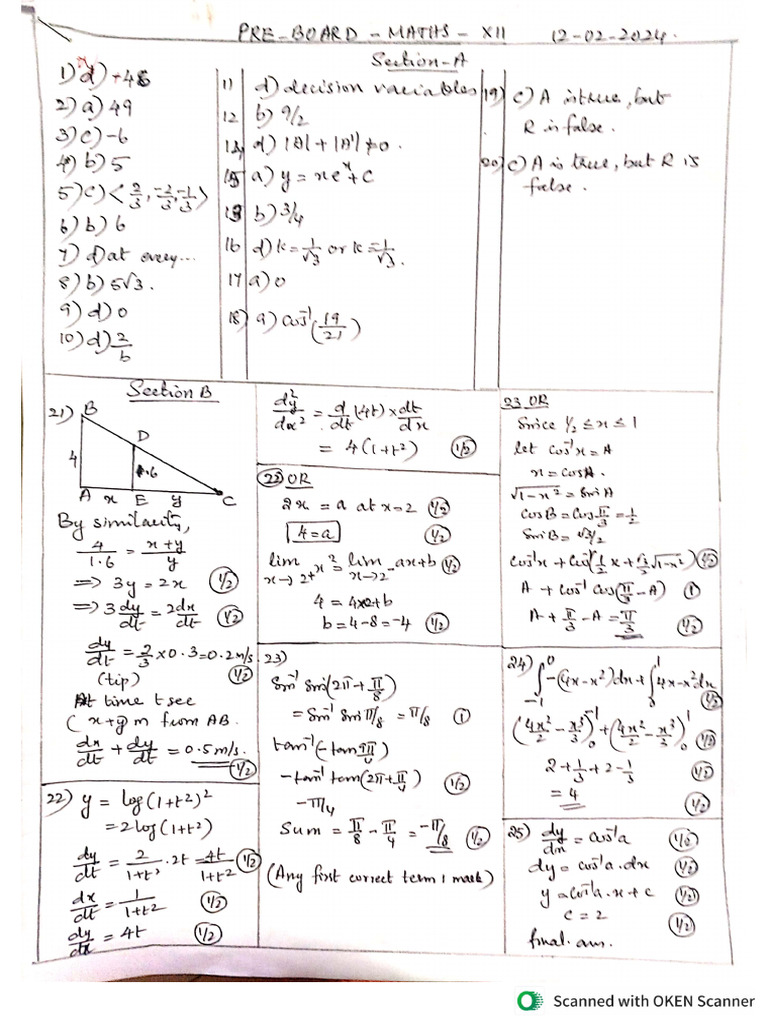 PRE-BOARD - MATHS - XII 12-02-2024.
Section-A
1) d) +48
2) a) 49
3) c) -6
4) b) 5
5) c) < 2/3, -2/3, -1/3 >
6) b) 6
7) d) at every...
8) b) 5√3.
9) d) 0
10) d) 2/b
11 d) decision variables
12 b) 9/2
13, d) |A| + |A'| ≠ 0.
a) y = xe^x + c
b) 3/4
16 d) k = 1/√3 or k = -1/√3.
17 a) 0
18) a) cos⁻¹(19/21)
19) c) A is true, but
R is false.
20) c) A is true, but R is
false.
Section B
21) B
D
4
1.6
A x E y C
By similarity,
4/1.6 = (x+y)/y
=> 3y = 2x (1/2)
=> 3 dy/dt = 2 dx/dt (1/2)
dy/dt = 2/3 × 0.3 = 0.2 m/s. (1/2)
(tip)
At time t sec
(x+y) m from AB.
dx/dt + dy/dt = 0.5 m/s. (1/2)
22) y = log(1+t²)²
= 2 log(1+t²)
dy/dt = 2/(1+t²) . 2t = 4t/(1+t²) (1/2)
dx/dt = 1/(1+t²) (1/2)
dy/dx = 4t (1/2)
d²y/dx² = d/dt (4t) × dt/dx
= 4(1+t²) (1/2)
22 OR
2x = a at x=2 (1/2)
4 = a (1/2)
lim x→2⁺ x² = lim x→2⁻ ax+b (1/2)
4 = 4×2+b
b = 4-8 = -4 (1/2)
23)
Sin⁻¹ Sin(2π + π/8)
= Sin⁻¹ Sin π/8 = π/8 (1)
tan⁻¹(-tan 9π/4)
-tan⁻¹ tan(2π + π/4) (1/2)
-π/4
Sum = π/8 - π/4 = -π/8 (1/2)
(Any first correct term 1 mark)
23 OR
Since 1/2 ≤ x ≤ 1
let cos⁻¹x = A
x = cosA.
√1-x² = SinA
CosB = Cos π/3 = 1/2
SinB = √3/2
cos⁻¹x + cos⁻¹(1/2 x + √3/2 √1-x²) (1/2)
A + cos⁻¹ cos(π/3 - A) (1)
A + π/3 - A = π/3 (1/2)
24) ∫₋₁⁰ -(4x-x²)dx + ∫₀¹ 4x-x² dx (1/2)
(4x²/2 - x³/3)₀⁻¹ + (4x²/2 - x³/3)₀¹ (1/2)
2 + 1/3 + 2 - 1/3 (1/2)
= 4 (1/2)
25) dy/dx = cos⁻¹a (1/2)
dy = cos⁻¹a . dx (1/2)
y = cos⁻¹a . x + c (1/2)
c = 2 (1/2)
final. ans.
Scanned with OKEN Scanner